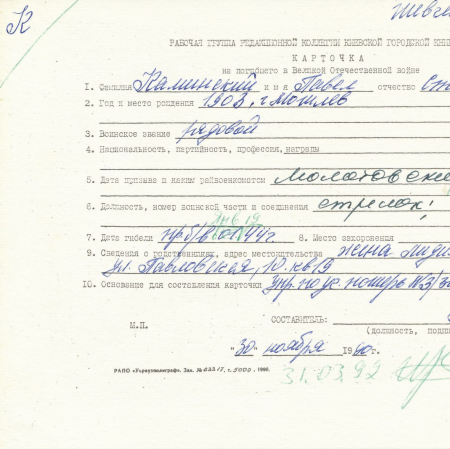 К
Шевче
РАБОЧАЯ ГРУППА РЕДАКЦИОННОЙ КОЛЛЕГИИ КИЕВСКОЙ ГОРОДСКОЙ КНИ
КАРТОЧКА
на погибшего в Великой Отечественной войне
1. Фамилия Каминский имя Павел отчество
2. Год и место рождения 1903, г. Могилев
3. Воинское звание рядовой
4. Национальность, партийность, профессия, награды
5. Дата призыва и каким райвоенкоматом Молотовски
6. Должность, номер воинской части и соединения стрелок
7. Дата гибели пр б/в 01.44г. 8. Место захоронения
9. Сведения о родственниках, адрес местожительства жена Лидия
ул. Павловская, 10, кв 19
10. Основание для составления карточки
СОСТАВИТЕЛЬ:
М.П. (должность, подпи
"30" ноября 1990г.
31.03.92
РАПО «Укрвузполиграф». Зак. № г. 5000, 1990.